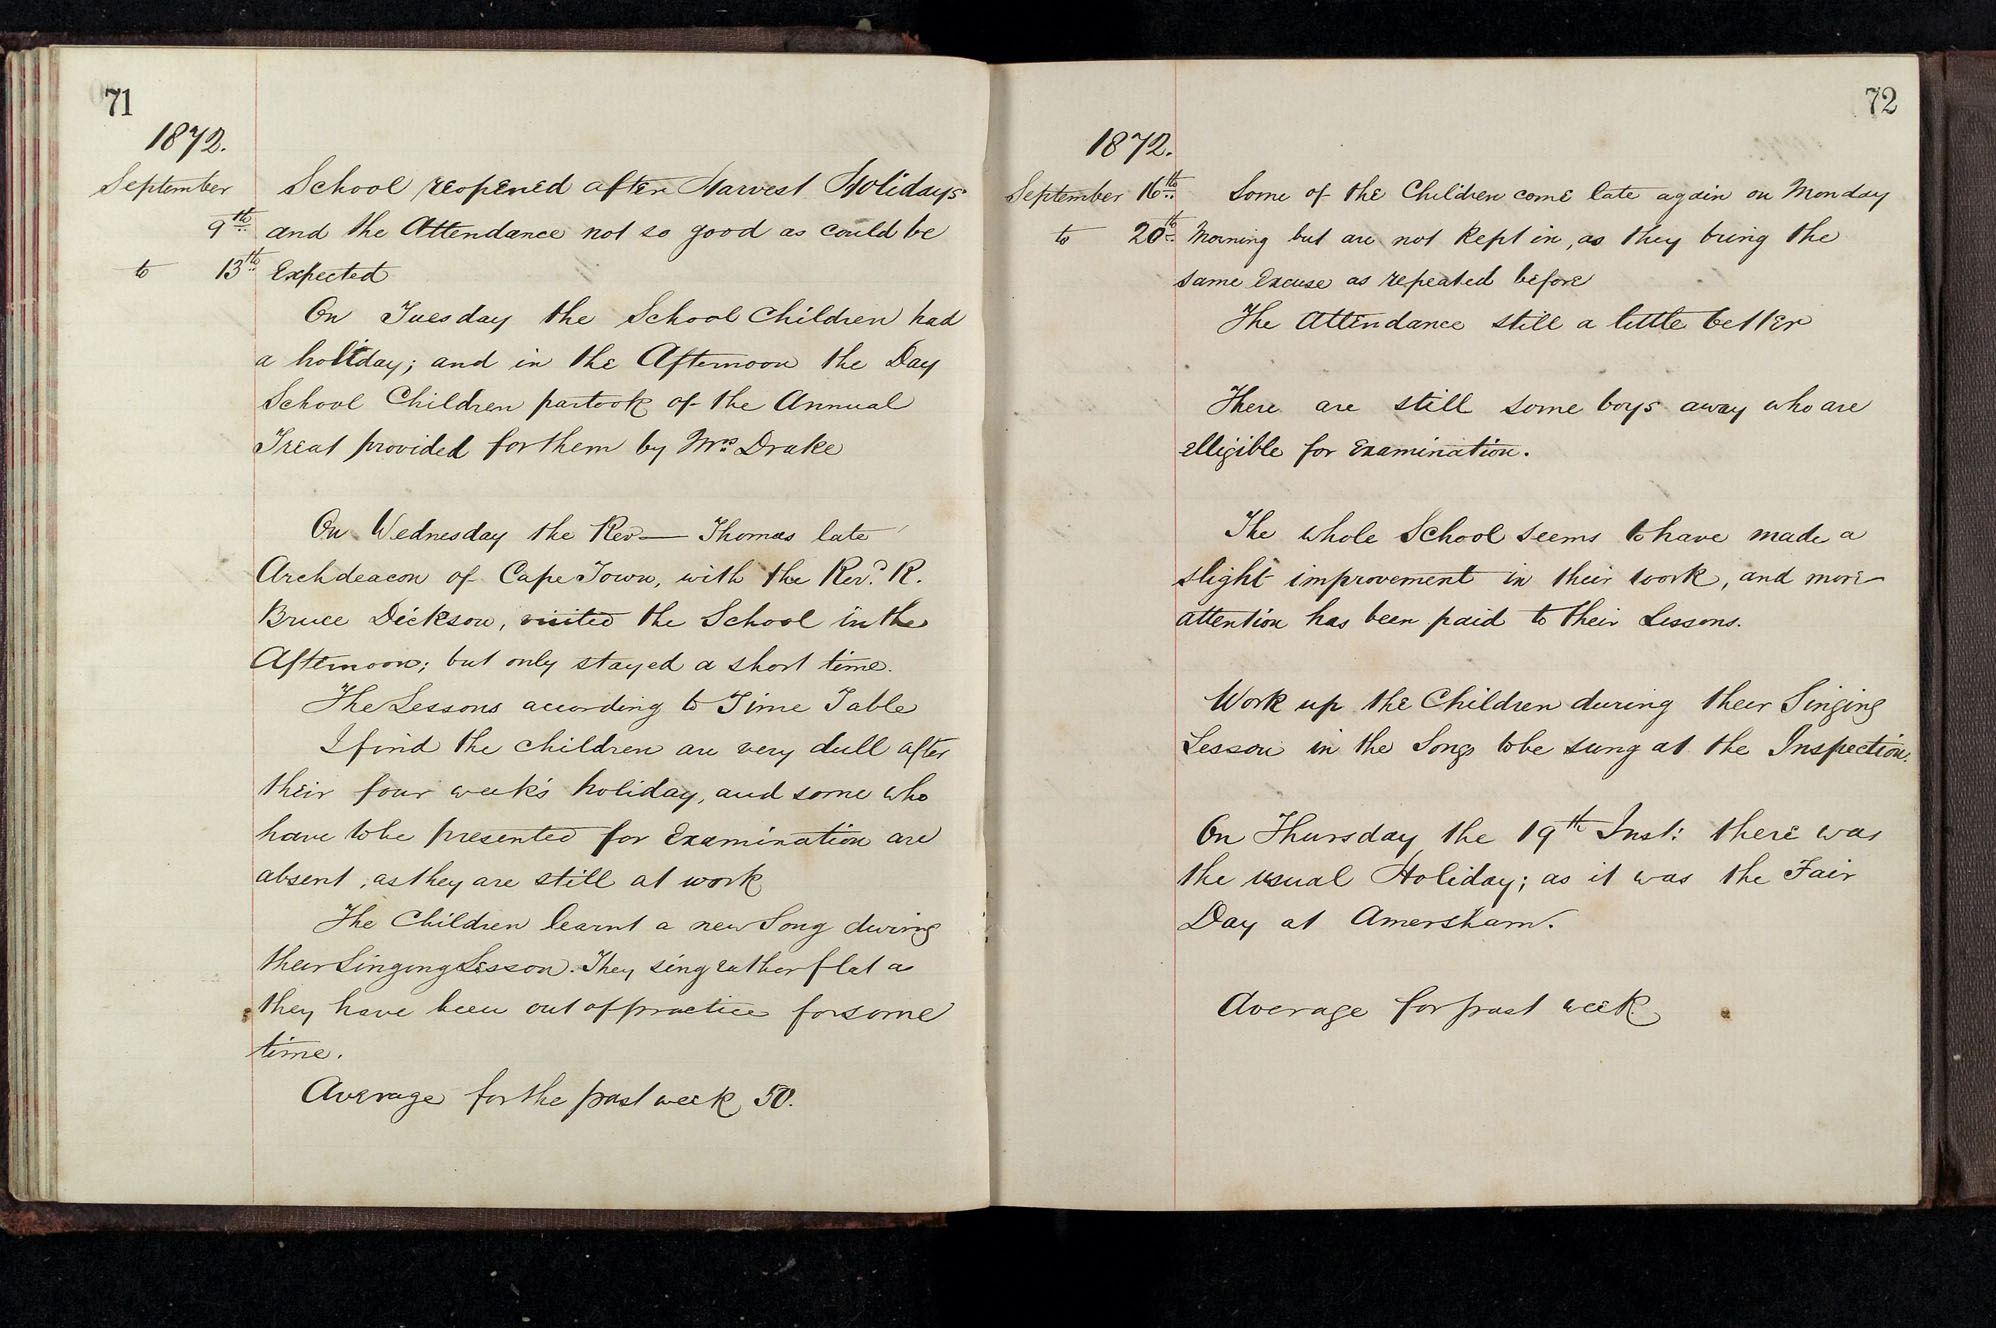 71
1872.
September School reopened after Harvest Holidays
9th and the Attendance not so good as could be
to 13th Expected
On Tuesday the School Children had
a holiday; and in the Afternoon the Day
School Children partook of the Annual
Treat provided for them by Mrs Drake
On Wednesday the Rev — Thomas late
Archdeacon of Cape Town, with the Revd. R.
Bruce Dickson, visited the School in the
Afternoon; but only stayed a short time.
The Lessons according to Time Table
I find the children are very dull after
their four week's holiday, and some who
have to be presented for Examination are
absent, as they are still at work
The Children learnt a new Song during
their Singing Lesson. They sing rather flat as
they have been out of practice for some
time.
Average for the past week 50.
72
1872.
September 16th Some of the Children come late again on Monday
to 20th Morning but are not kept in, as they bring the
same Excuse as repeated before
The Attendance still a little better
There are still some boys away who are
elligible for Examination.
The whole School seems to have made a
slight improvement in their work, and more
attention has been paid to their Lessons.
Work up the Children during their Singing
Lesson in the Songs to be sung at the Inspection.
On Thursday the 19th Inst: there was
the usual Holiday; as it was the Fair
Day at Amersham.
Average for past week